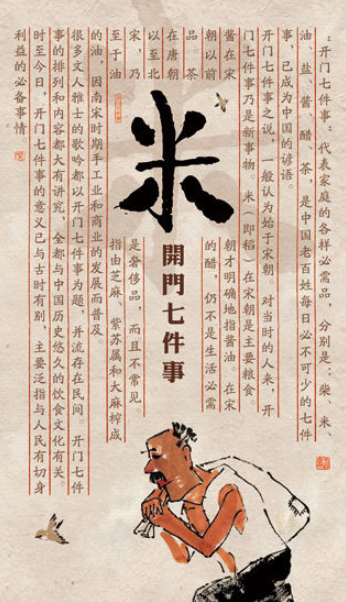 ：开门七件事：代表家庭的各样必需品，分别是：柴、米、
油、盐、酱、醋、茶，是中国老百姓每日必不可少的七件
事，已成为中国的谚语。
开门七件事之说，一般认为始于宋朝。对当时的人来，开
门七件事乃是新事物。米（即稻）在宋朝是主要粮食。
酱在宋
朝才明确地指酱油。在宋
朝以前
的醋，仍不是生活必需
品。茶
在唐朝
以至北
宋，乃
是奢侈品，而且不常见。
至于油
指由芝麻、紫苏属和大麻榨成
的油，因南宋时期手工业和商业的发展而普及。
很多文人雅士的歌吟都以开门七件事为题，并流存在民间。开门七件
事的排列和内容都大有讲究，全都与中国历史悠久的饮食文化有关。
时至今日，开门七件事的意义已与古时有别，主要泛指与人民有切身
利益的必备事情
米
開門七件事